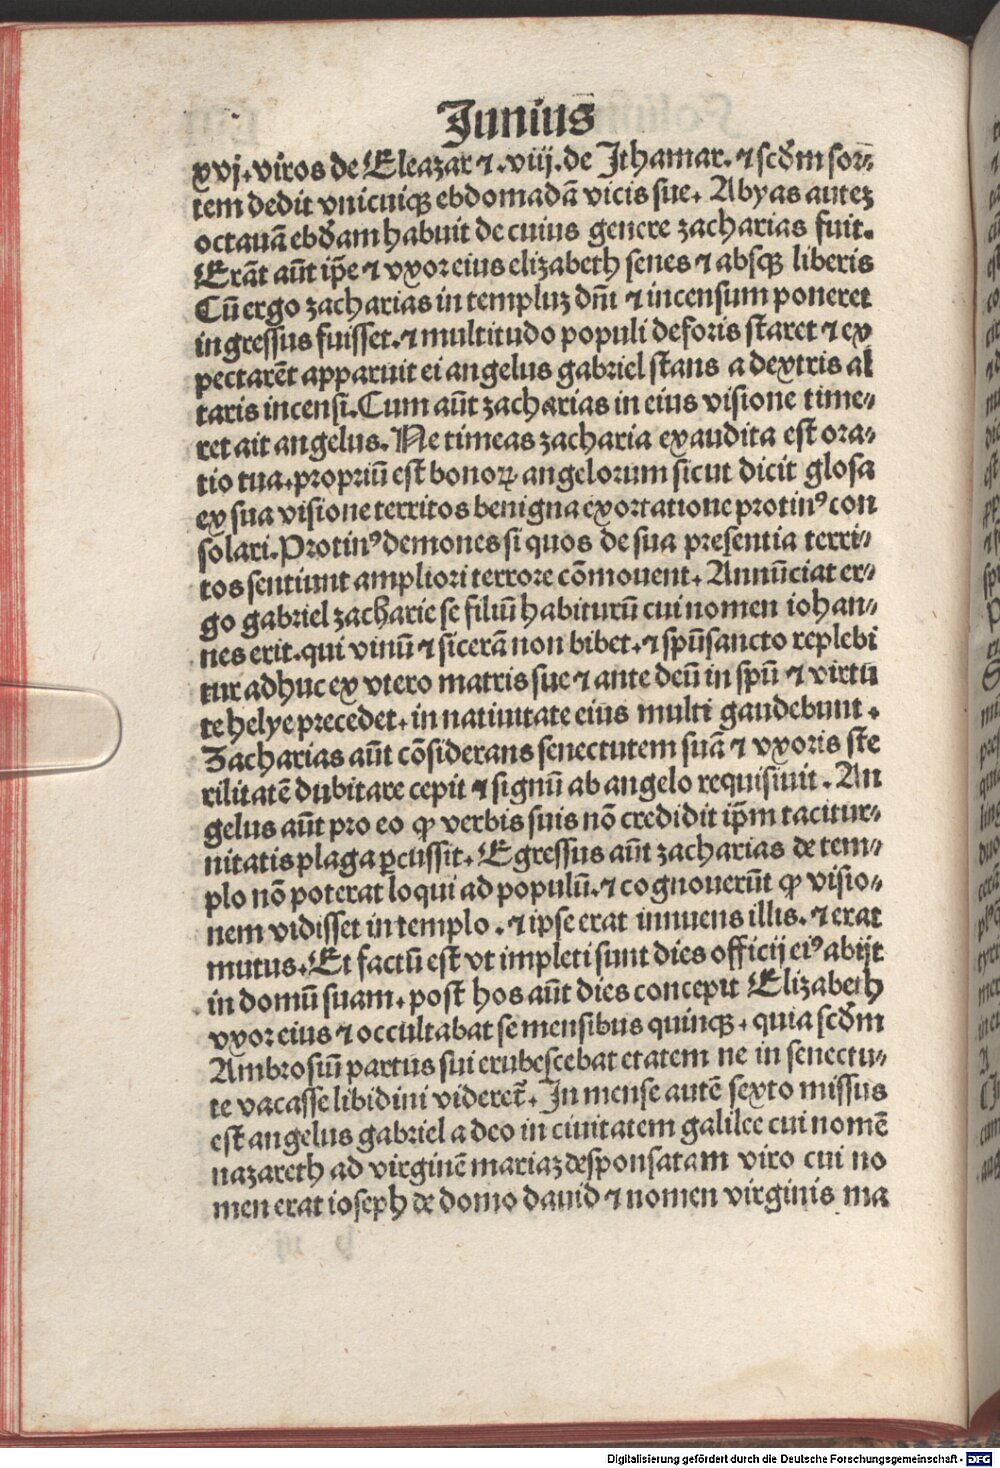 Junius
xvj. viros de Eleazar ⁊ .viij. de Jthamar. ⁊ scd̄m sor⸗
tem dedit vnicuiqꝫ ebdomadā vicis sue. Abyas autez
octauā ebd̄am habuit de cuius genere zacharias fuit.
Erāt aūt ip̄e ⁊ vxor eius elizabeth senes ⁊ absqꝫ liberis
Cū ergo zacharias in templuz dn̄i ⁊ incensum poneret
ingressus fuisset. ⁊ multitudo populi deforis staret ⁊ ex
pectarēt apparuit ei angelus gabriel stans a dextris al
taris incensi. Cum aūt zacharias in eius visione time⸗
ret ait angelus. Ne timeas zacharia exaudita est ora⸗
tio tua. propriū est bonoꝝ angelorum sicut dicit glosa
ex sua visione territos benigna exortatione protinꝰ con
solari. Protinꝰ demones si quos de sua presentia terri⸗
tos sentiunt ampliori terrore cōmouent. Annūciat er⸗
go gabriel zacharie se filiū habiturū cui nomen iohan⸗
nes erit. qui vinū ⁊ sicerā non bibet. ⁊ spūsancto replebi
tur adhuc ex vtero matris sue ⁊ ante deū in spū ⁊ virtu
te helye precedet. in natiuitate eius multi gaudebunt.
Zacharias aūt cōsiderans senectutem suā ⁊ vxoris ste
rilitatē dubitare cepit ⁊ signū ab angelo requisiuit. An
gelus aūt pro eo ꝙ verbis suis nō credidit ip̄m tacitur⸗
nitatis plaga ꝑcussit. Egressus aūt zacharias de tem⸗
plo nō poterat loqui ad populū. ⁊ cognouerūt ꝙ visio⸗
nem vidisset in templo. ⁊ ipse erat innuens illis. ⁊ erat
mutus. Et factū est vt impleti sunt dies officij eiꝰ abijt
in domū suam. post hos aūt dies concepit Elizabeth
vxor eius ⁊ occultabat se mensibus quinqꝫ. quia scd̄m
Ambrosiū partus sui erubescebat etatem ne in senectu⸗
te vacasse libidini videret̄. In mense autē sexto missus
est angelus gabriel a deo in ciuitatem galilee cui nomē
nazareth ad virginē mariaz desponsatam viro cui no
men erat ioseph de domo dauid ⁊ nomen virginis ma
Digitalisierung gefördert durch die Deutsche Forschungsgemeinschaft - DFG